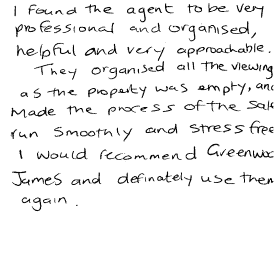 I found the agent to be very
professional and organised,
helpful and very approachable.
They organised all the viewing
as the property was empty, and
Made the process of the sale
run smoothly and stress free
I would recommend Greenwoo
James and definately use them
again.